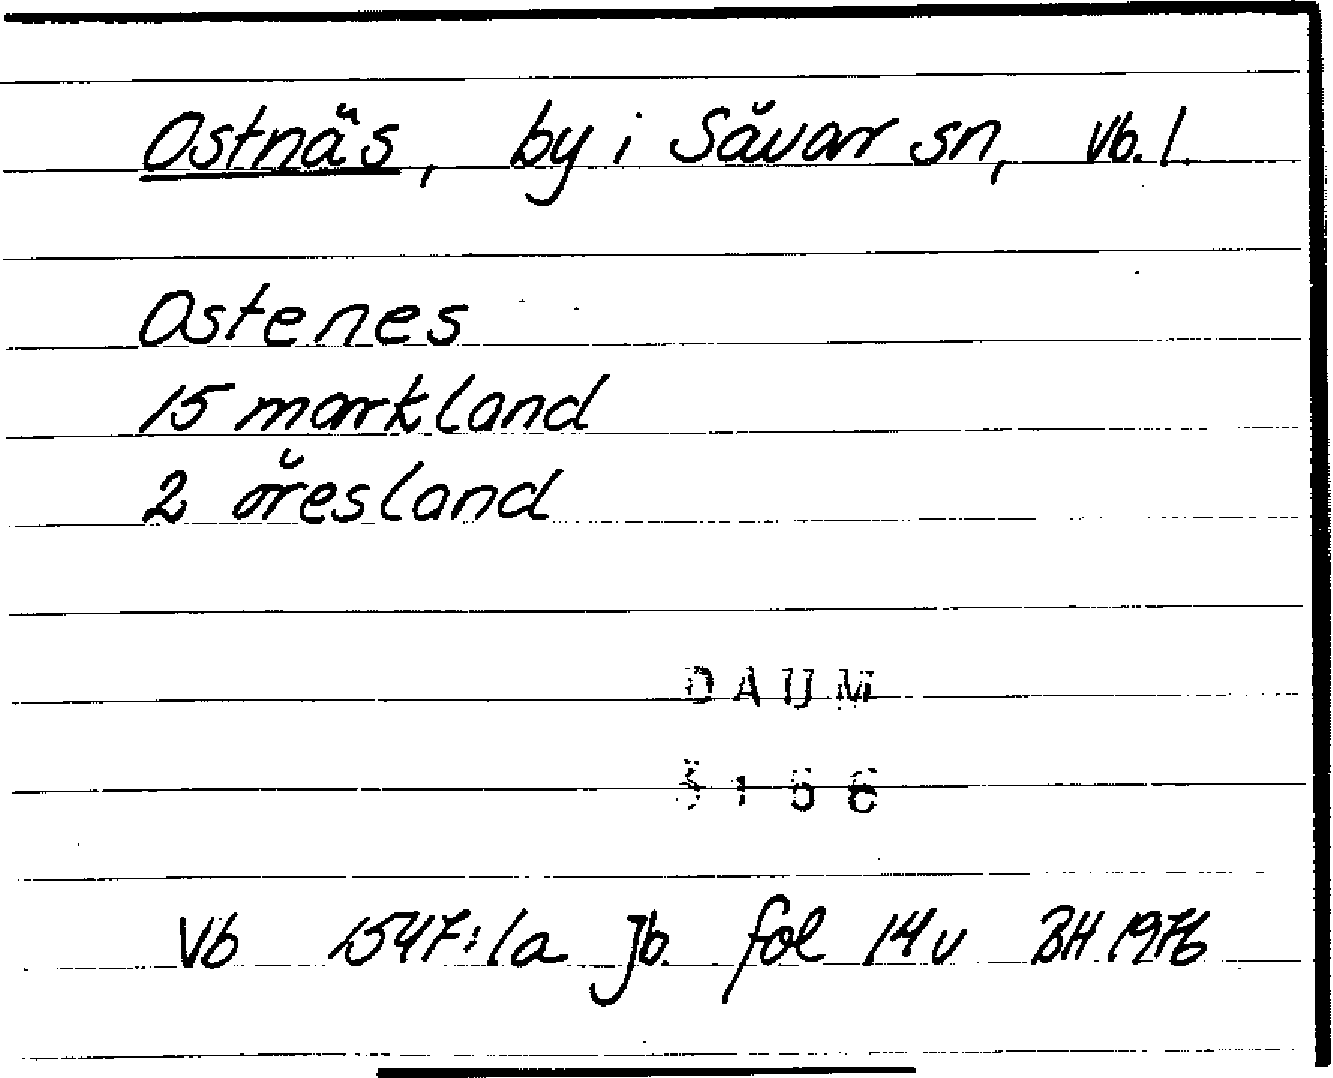 Ostnäs, by i Sävar sn, Vb. l.
Ostenes
15 markland
2 öresland
DAUM
Vb 1547:1a Jb. fol 14v BH 1976